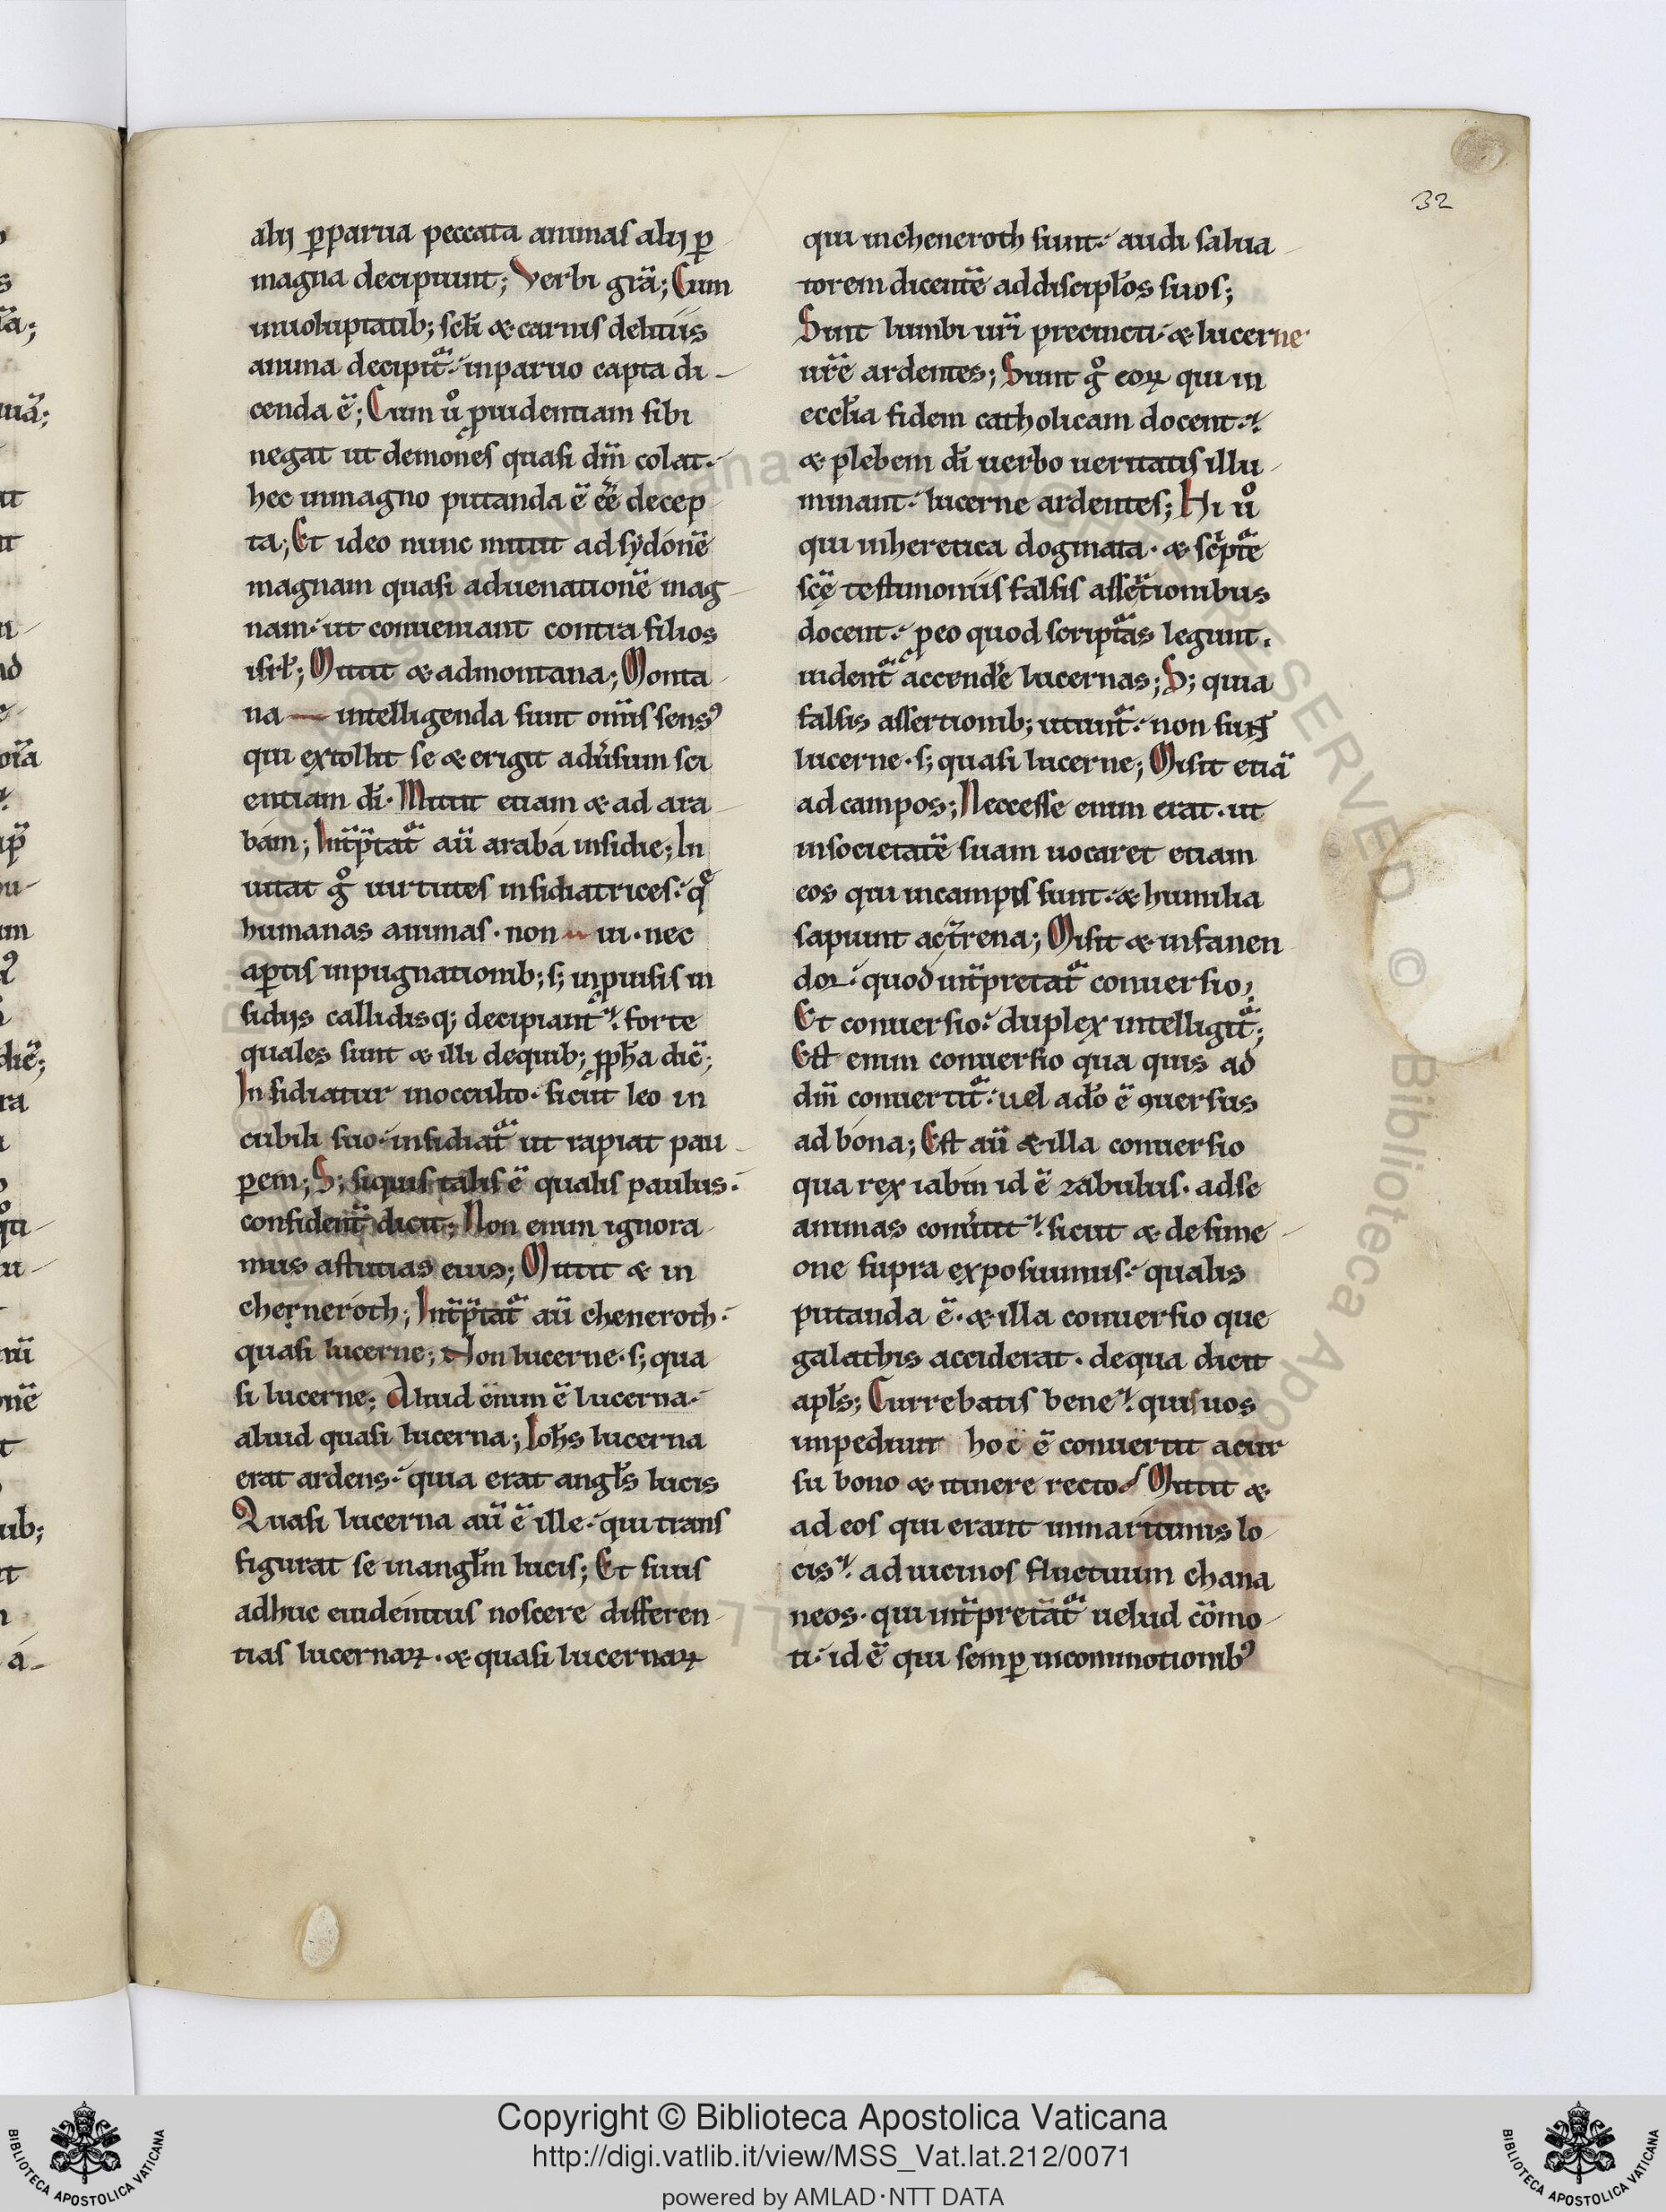 32
alij ꝑparua peccata animas alij ꝑ
magna decipiunt; Verbi gr̄a; Cum
inuoluptatib; scl̄i & carnis delitiis
anima decipit᷑ inparuo capta di
cenda ē; Cum ů ꝓuidentiam sibi
negat ut demones quasi dm̄ colat
hec inmagno putanda ē eē̄ decep
ta; Et ideo nunc mittit ad sẏdonē
magnam quasi aduenationē mag
nam ut conueniant contra filios
isrl̄; Mittit & admontana; Monta
na intelligenda sunt om̄is sensꝰ
qui extollit se & erigit adu̓sum sci
entiam dī. Mittit etiam & ad ara
bám; Int̄p̄tat᷑ aū arabá insidie; In
uitat g̊ uirtutes insidiatrices. q̊
humanas animas. non ui. nec
aꝑtis inpugnationib; s; inꝓuisis in
sidijs callidisq; decipiant. forte
quales sunt & illi dequib; ꝓph̄a dic̄;
Insidiatur inocculto. sicut leo in
cubili suo. insidiat᷑ ut rapiat pau
ꝑem; S; siquis talis ē qualis paulus.
confident᷑ dicit; Non enim ignora
mus astutias eius; Mittit & in
cherneróth; Int̄p̄tat᷑ aū cheneroth.
quasi lucerne; Non lucerne. s; qua
si lucerne; Aliud enim ē lucerna.
aliud quasi lucerna; Ioh̄s lucerna
erat ardens. quia erat angl̄s lucis
Quasi lucerna aū ē ille. qui trans
figurat se inangl̄m lucis; Et siuis
adhuc euidentius noscere differen
tias lucernaꝝ. & quasi lucernaꝝ
qui incheneroth sunt. audi salua
torem dicentē addiscipl̄os suos;
Sint lumbi ur̄i precincti. & lucerne
ur̄e ardentes; Sunt g̊ eoꝝ qui in
eccl̄ia fidem catholicam docent.
& plebem dī uerbo ueritatis illu
minant. lucerne ardentes; Hi ů
qui inheretica dogmata. & sc̓pt᷑e
sc̄ę testimoniis falsis assert̄ionibus
docent. ꝓeo quod scriptas legunt.
uident᷑ accende̓ lucernas; S; quia
falsis assertionib; utunt᷑. non sunt
lucerne. s; quasi lucerne; Misit etiā
ad campos; Neccesse enim erat. ut
insocietatē suam uocaret etiam
eos qui incampis sunt. & humilia
sapiunt act̄rena; Misit & infanen
dor. quod int̄pretat᷑ conuersio;
Et conuersio. duplex intelligit᷑;
Est enim conuersio qua quis ad
dm̄ conuertit᷑. uel adō ē ꝯuersus
ad bóna; Est aū & illa conuersio
qua rex iabin id ē zabulus. adse
animas conu̓tit. sicut & de sime
one supra exposuimus. qualis
putanda ē. & illa conuersio que
galathis acciderat. dequa dicit
apl̄s; Currebatis bene. quis uos
impediuit hoc ē conuertit acur
su bono & itinere recto. Mittit &
ad eos qui erant inmaritimis lo
cis. ad uicinos fluctuum chana
neos. qui int̄pretat᷑ uelud cōmo
ti. id ē qui semꝑ incommotionibꝰ
Copyright © Biblioteca Apostolica Vaticana
http://digi.vatlib.it/view/MSS_Vat.lat.212/0071
powered by AMLAD·NTT DATA
BIBLIOTECA APOSTOLICA VATICANA
BIBLIOTECA APOSTOLICA VATICANA